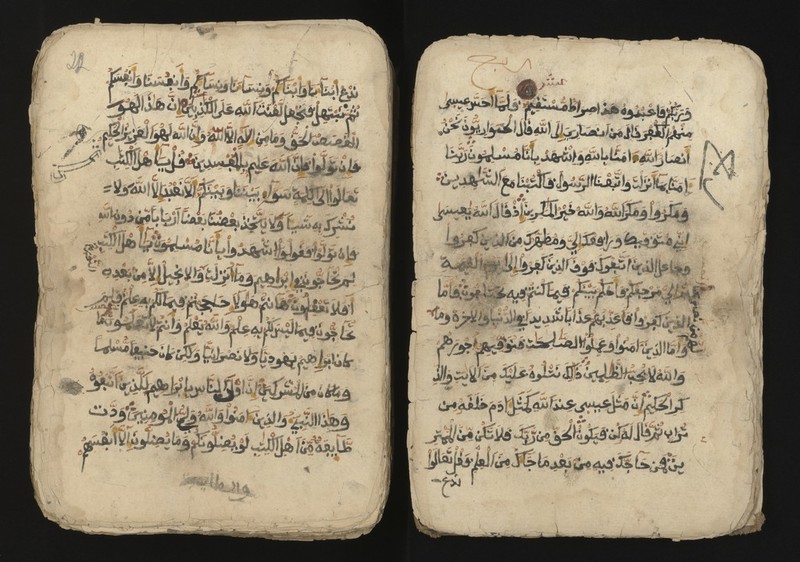 وربكم فاعبدوه هذا صراط مستقيم فلما أحس عيسى
منهم الكفر قال من أنصاري إلى الله قال الحواريون نحن
أنصار الله امنا بالله واشهد بأنا مسلمون ربنا
امنا بما أنزلت واتبعنا الرسول فاكتبنا مع الشهدين
ومكروا ومكر الله والله خير المكرين إذ قال الله يعيسى
إني متوفيك ورافعك إلي ومطهرك من الذين كفروا
وجاعل الذين اتبعوك فوق الذين كفروا إلى يوم القيمة
ثم إلي مرجعكم فأحكم بينكم فيما كنتم فيه تختلفون فأما
الذين كفروا فأعذبهم عذابا شديدا في الدنيا والاخرة وما
لهم من نصرين
وأما الذين امنوا وعملوا الصلحت فنوفيهم أجورهم
والله لا يحب الظلمين ذلك نتلوه عليك من الايت والذ
كر الحكيم إن مثل عيسى عند الله كمثل ادم خلقه من
تراب ثم قال له كن فيكون الحق من ربك فلا تكن من الممتر
ين فمن حاجك فيه من بعد ما جاك من العلم فقل تعالوا
ندع
ندع أبناءنا وأبناءكم ونساءنا ونساءكم وأنفسنا وأنفسكم
ثم نبتهل فنجعل لعنت الله على الكذبين إن هذا لهو
القصص الحق وما من إله إلا الله وإن الله لهو العزيز الحكيم
فإن تولوا فإن الله عليم بالمفسدين قل يأهل الكتب
تعالوا إلى كلمة سواء بيننا وبينكم ألا نعبد إلا الله ولا
نشرك به شيا ولا يتخذ بعضنا بعضا أربابا من دون الله
فإن تولوا فقولوا اشهدوا بأنا مسلمون يأهل الكتب
لم تحاجون في إبراهيم وما أنزلت التورية والانجيل إلا من بعده
أفلا تعقلون هأنتم هؤلاء حججتم فيما لكم به علم فلم
تحاجون فيما ليس لكم به علم والله يعلم وأنتم لا تعلمون ما
كان إبراهيم يهوديا ولا نصرانيا ولكن كان حنيفا مسلما
وما كان من المشركين إن أولى الناس بإبراهيم للذين اتبعوه
وهذا النبي والذين امنوا والله ولي المومنين ودت
طايفة من أهل الكتب لو يضلونكم وما يضلون إلا أنفسهم